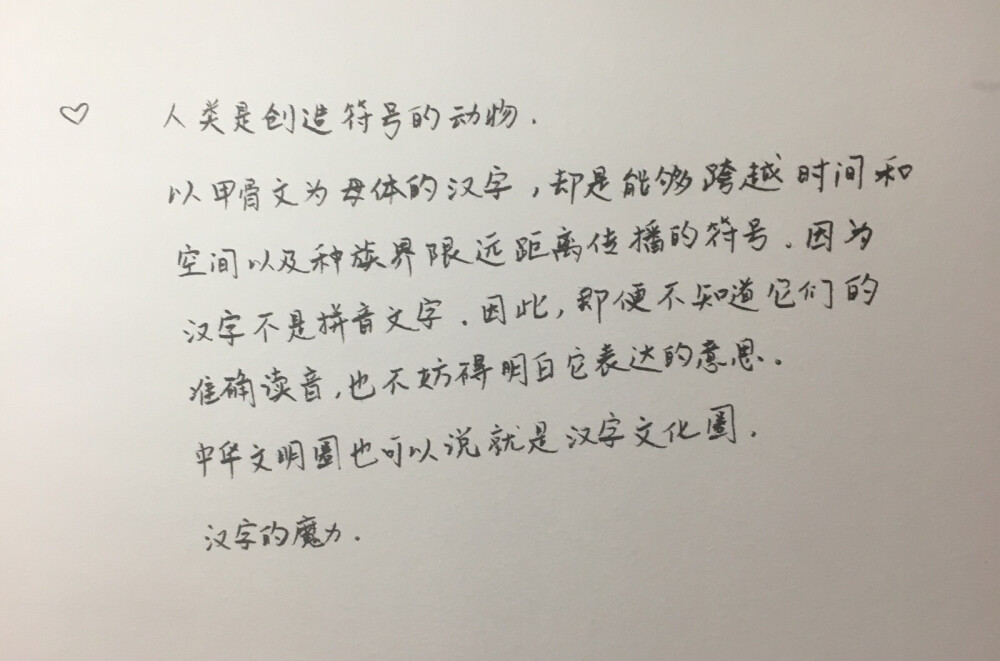 ♡ 人类是创造符号的动物.
以甲骨文为母体的汉字,却是能够跨越时间和
空间以及种族界限远距离传播的符号.因为
汉字不是拼音文字.因此,即便不知道它们的
准确读音,也不妨碍明白它表达的意思。
中华文明圈也可以说就是汉字文化圈.
汉字的魔力.